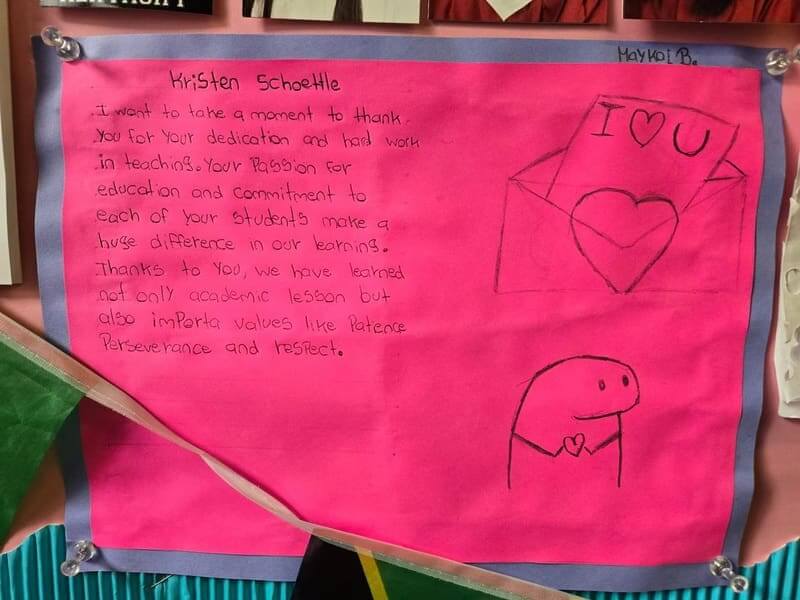 Maykol B.
Kristen Schoettle
I want to take a moment to thank
you for your dedication and hard work
in teaching. Your Passion for
education and commitment to
each of your students make a
huge difference in our learning.
Thanks to you, we have learned
not only academic lesson but
also imPorta values like Patence
Perseverance and resPect.
I ♡ U